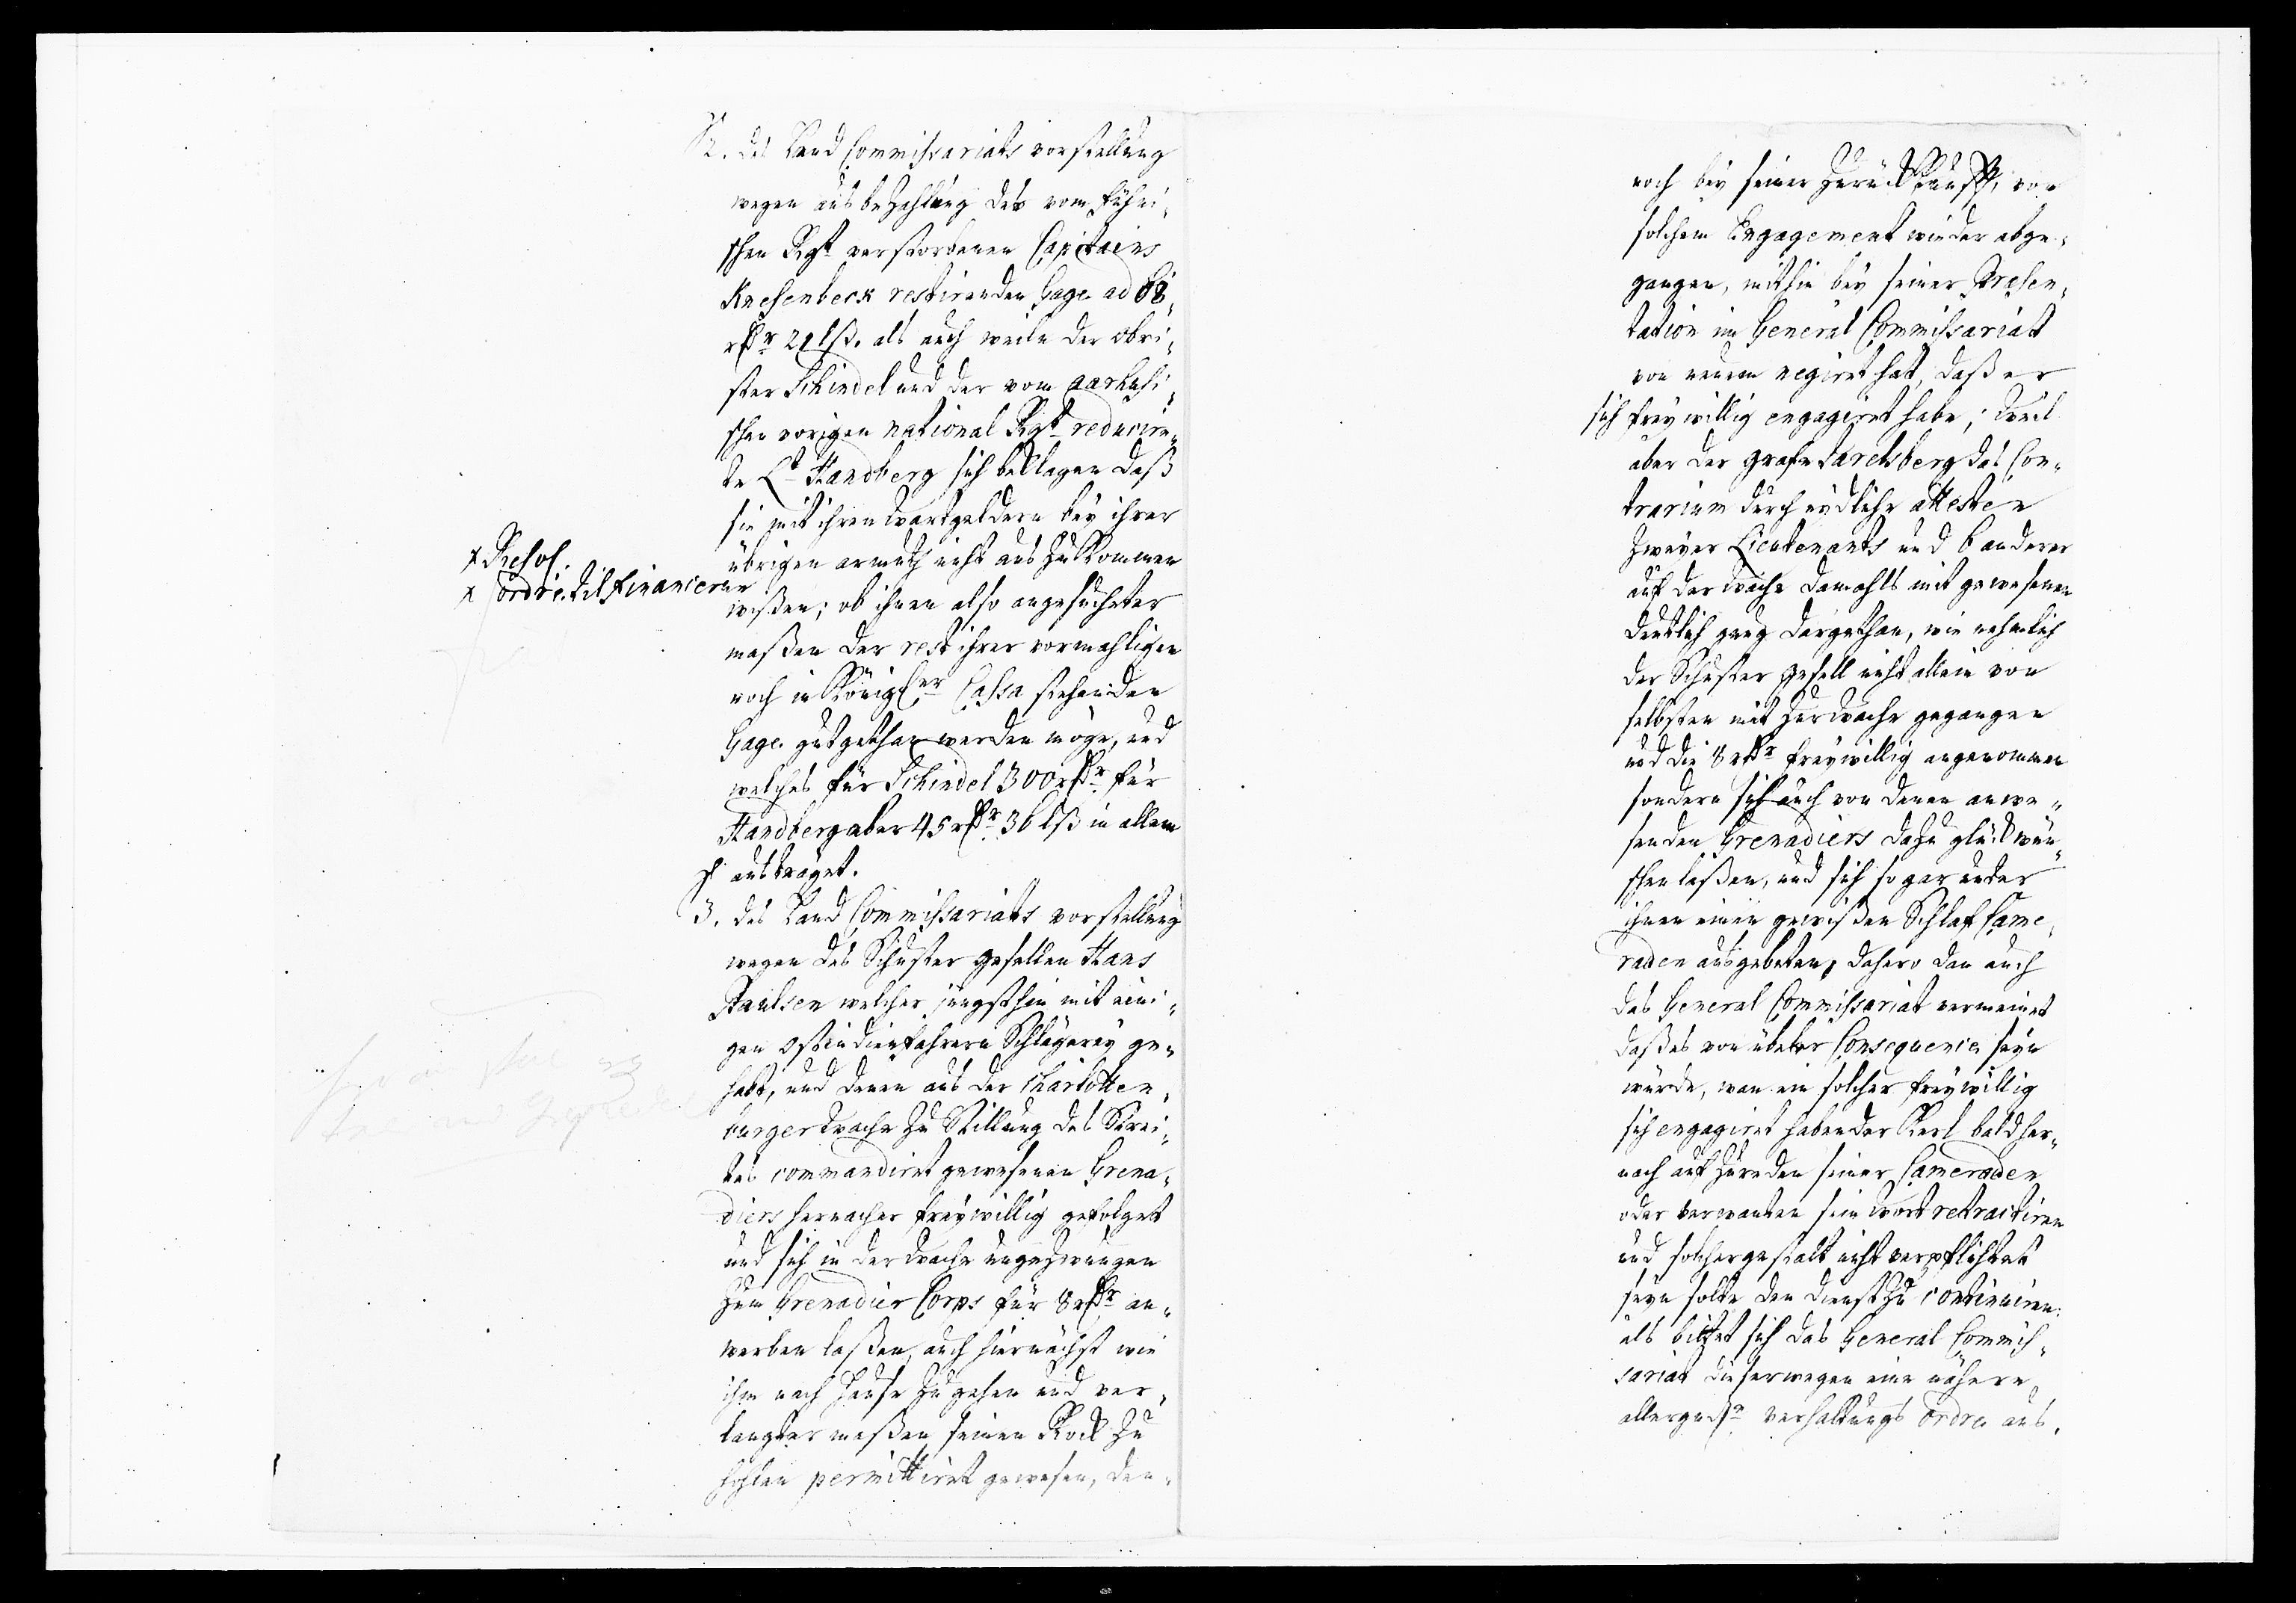 2. des Land Commissariats vorstellung
wegen ausbezahlung des vom Fühni,
schen Rgt verstorbenen Capitains
Knesenbeck restirenden Gage ad 88
rdr 21 lß. als auch weile der Obri,
ster Schindel und der vom aarhusi,
schen vorigen national Rgt reducir,
te Lt Handberg sich beklagen daß
sie mit ihren wartgeldern bey ihrer
übrigen armuth nicht aus zu kommen
wißen; ob ihnen also angesuchter
maßen der rest ihrer vormahligen
noch in Königler Cassa stehenden
Gage gutgethan werden möge, und
welches für Schindel 300 rdr für
Handberg aber 45 rdr 36 lß in allem
austräget.
x Resol.
x ordre til Financerne
3. des Land Commissariats vorstellung
wegen des Schuster gesellen Hans
Paulsen welcher jüngsthin mit eini,
gen Ostindienfahrern Schlägerey ge,
habt, und denen aus der Charlotten,
burger wache zu Stillung des Strei,
tes commandiret gewesenen Grena,
diers hernacher freywillig gefolget
und sich in der wache ungezwungen
zum Grenadier Corps für 8 rdr an,
werben laßen, auch hiernächst wie
ihm nach Hause zu gehen und ver,
langter maßen seinen Rock zu
hohlen permittiret gewesen, den,
noch bey seiner Zurückkunfft, von
solchem Engagement wieder abge,
gangen, mithin bey seiner Presen,
tation im General Commissariat
von neuem negiret hat, daß er
sich freywillig engagiret habe; weil
aber der grafe Dareksberg das Con,
trarium durch eydliche attesten
zweyer Lieutenants und 6 anderer
auf der wache damahls mit gewesenen
deutlich gnug dargethan, wie nehmlich
der Schuster gesell nicht allein von
selbsten mit zur wache gegangen
und die 8 rdr freywillig angenommen
sondern sich auch von denen anwe,
senden Grenadiers dazu glückwün,
schen laßen, und sich so gar unter
ihnen einen gewißen Schlaf Came,
raden ausgebeten, dahero dan auch
das General Commissariat vermeinet
daß es von übeler Consequence seyn
würde, wan ein solcher freywillig
sich engagiret habender Kerl bald her,
nach auf zureden seiner Cameraden
oder verwanten sein wort retractiren
und solchergestalt nicht verpflichtet
seyn solte den dienst zu continuiren:
als bittet sich das General Commis,
sariat dieserwegen eine nähere
allergndste verhaltungs ordre aus.